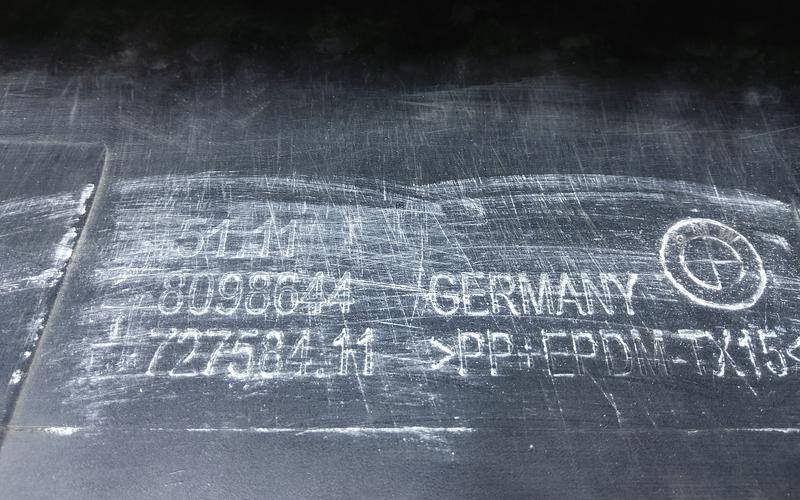 51.11
8098644 GERMANY
727584.11 >PP+EPDM-TX15<